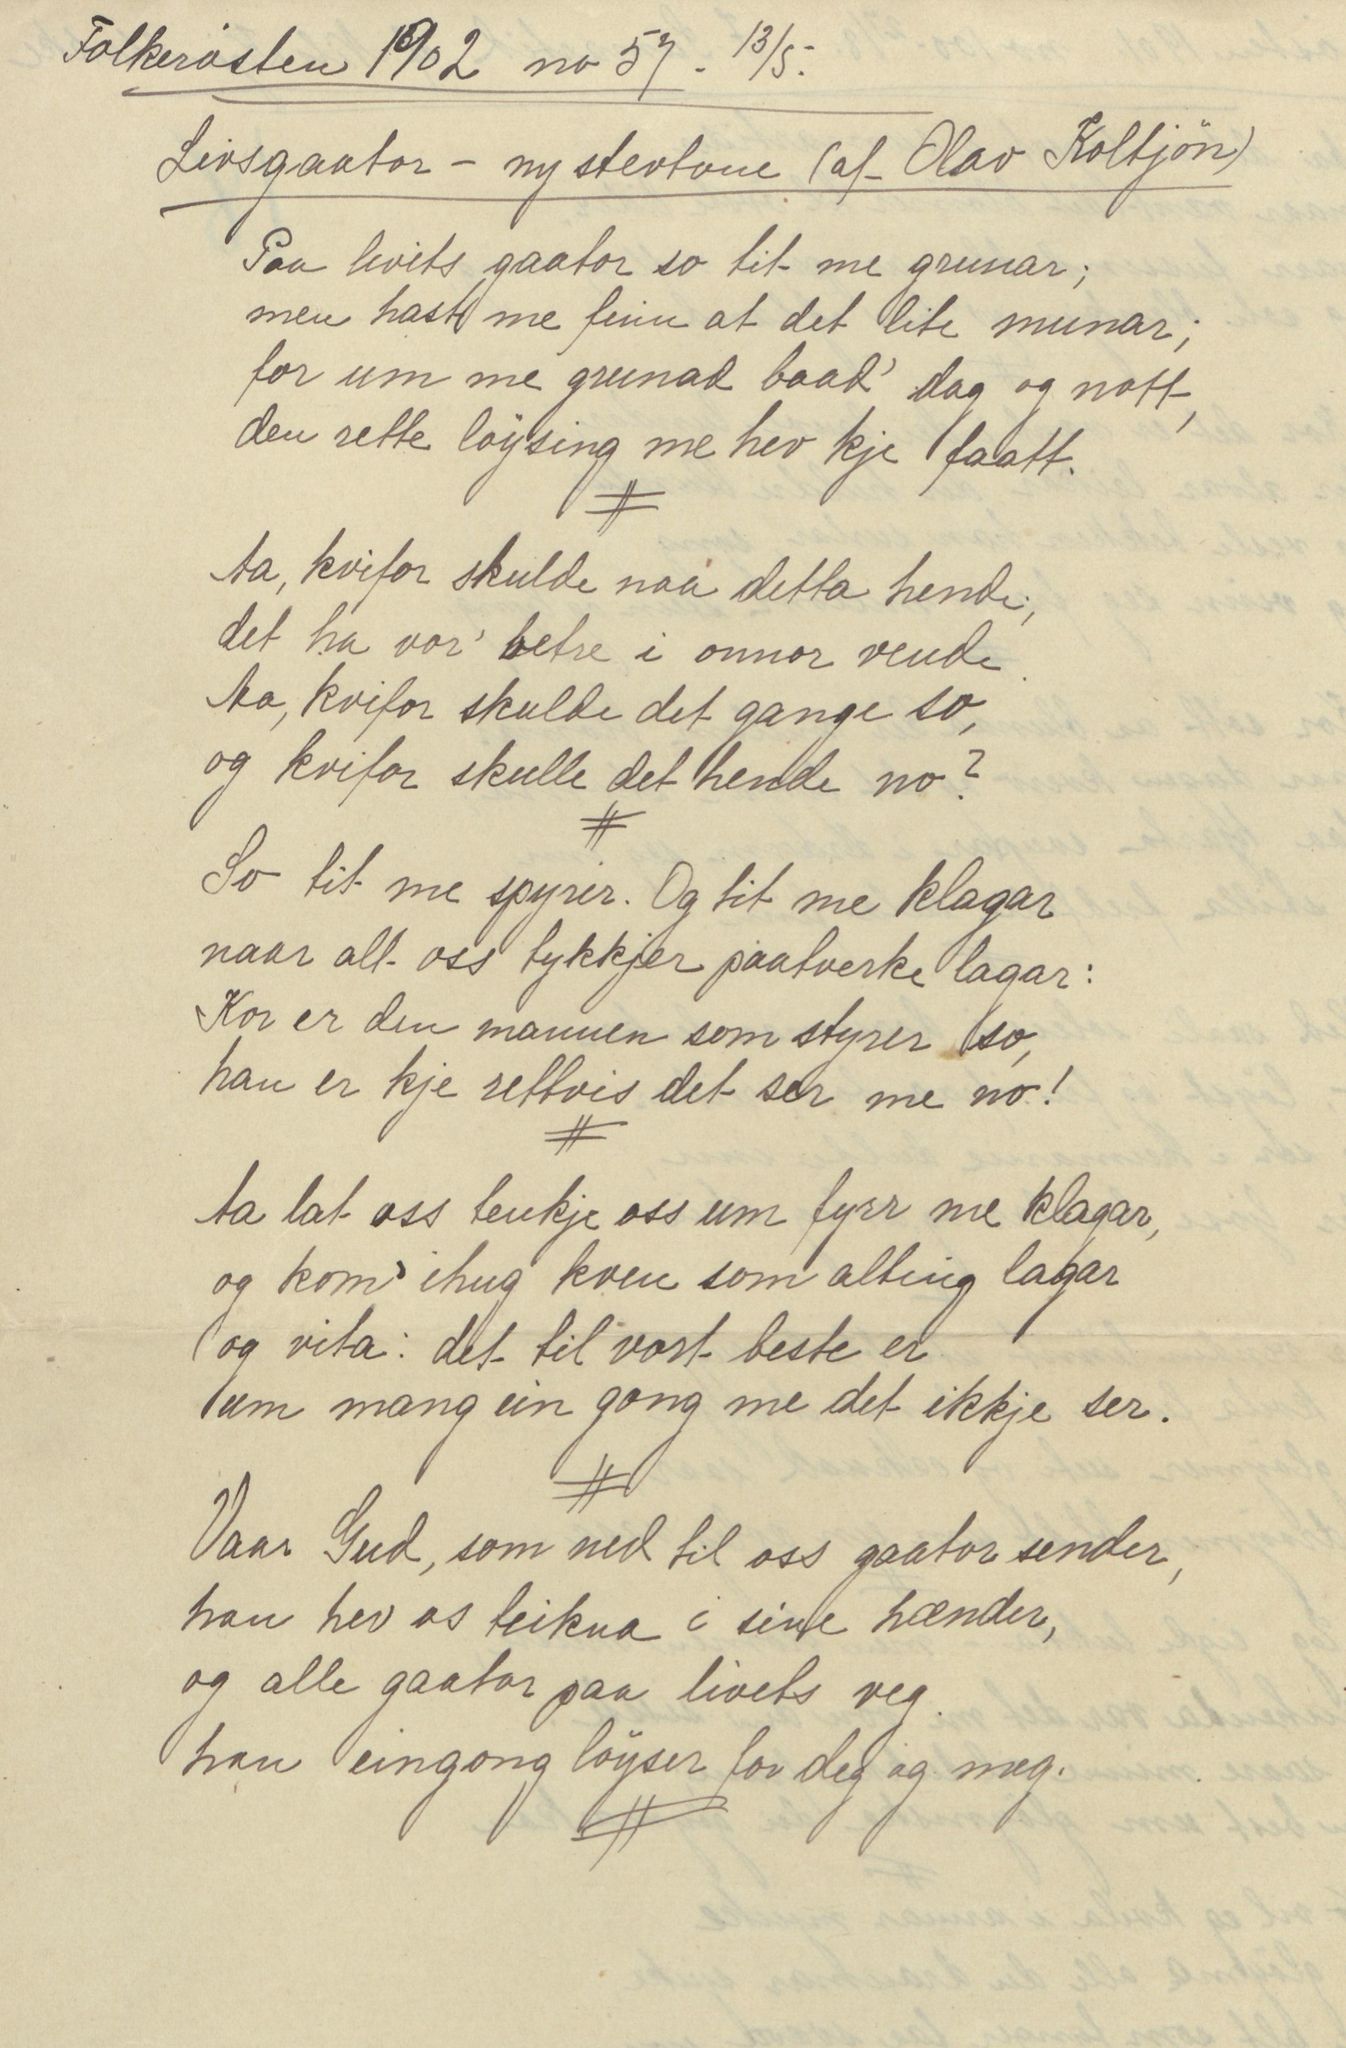 Folkerösten 1902 no 57. 13/5.
Livsgaator - ny stevtone (af Olav Koltjön)
Paa livets gaator so tit me grunar;
men hast me finn at det lite munar;
for um me grunad baad' dag og nott,
den rette löysing me hev kje faatt.
Aa, kvifor skulde naa detta hende;
det ha vor' betre i onnor vende.
Aa, kvifor skulde det gange so,
og kvifor skulle det hende no?
So tit me spyrer. Og tit me klagar
naar alt oss tykkjer paatverke lagar:
Kor er den mannen som styrer so,
han er kje rettvis det ser me no!
Aa lat oss tenkje oss um fyrr me klagar,
og kom' ihug kven som alting lagar
og vita: det til vort beste er
um mang ein gong me det ikkje ser.
Vaar Gud, som ned til oss gaator sender,
han hev os teikna i sine hænder,
og alle gaator paa livets veg.
han eingong löyser for deg og meg.